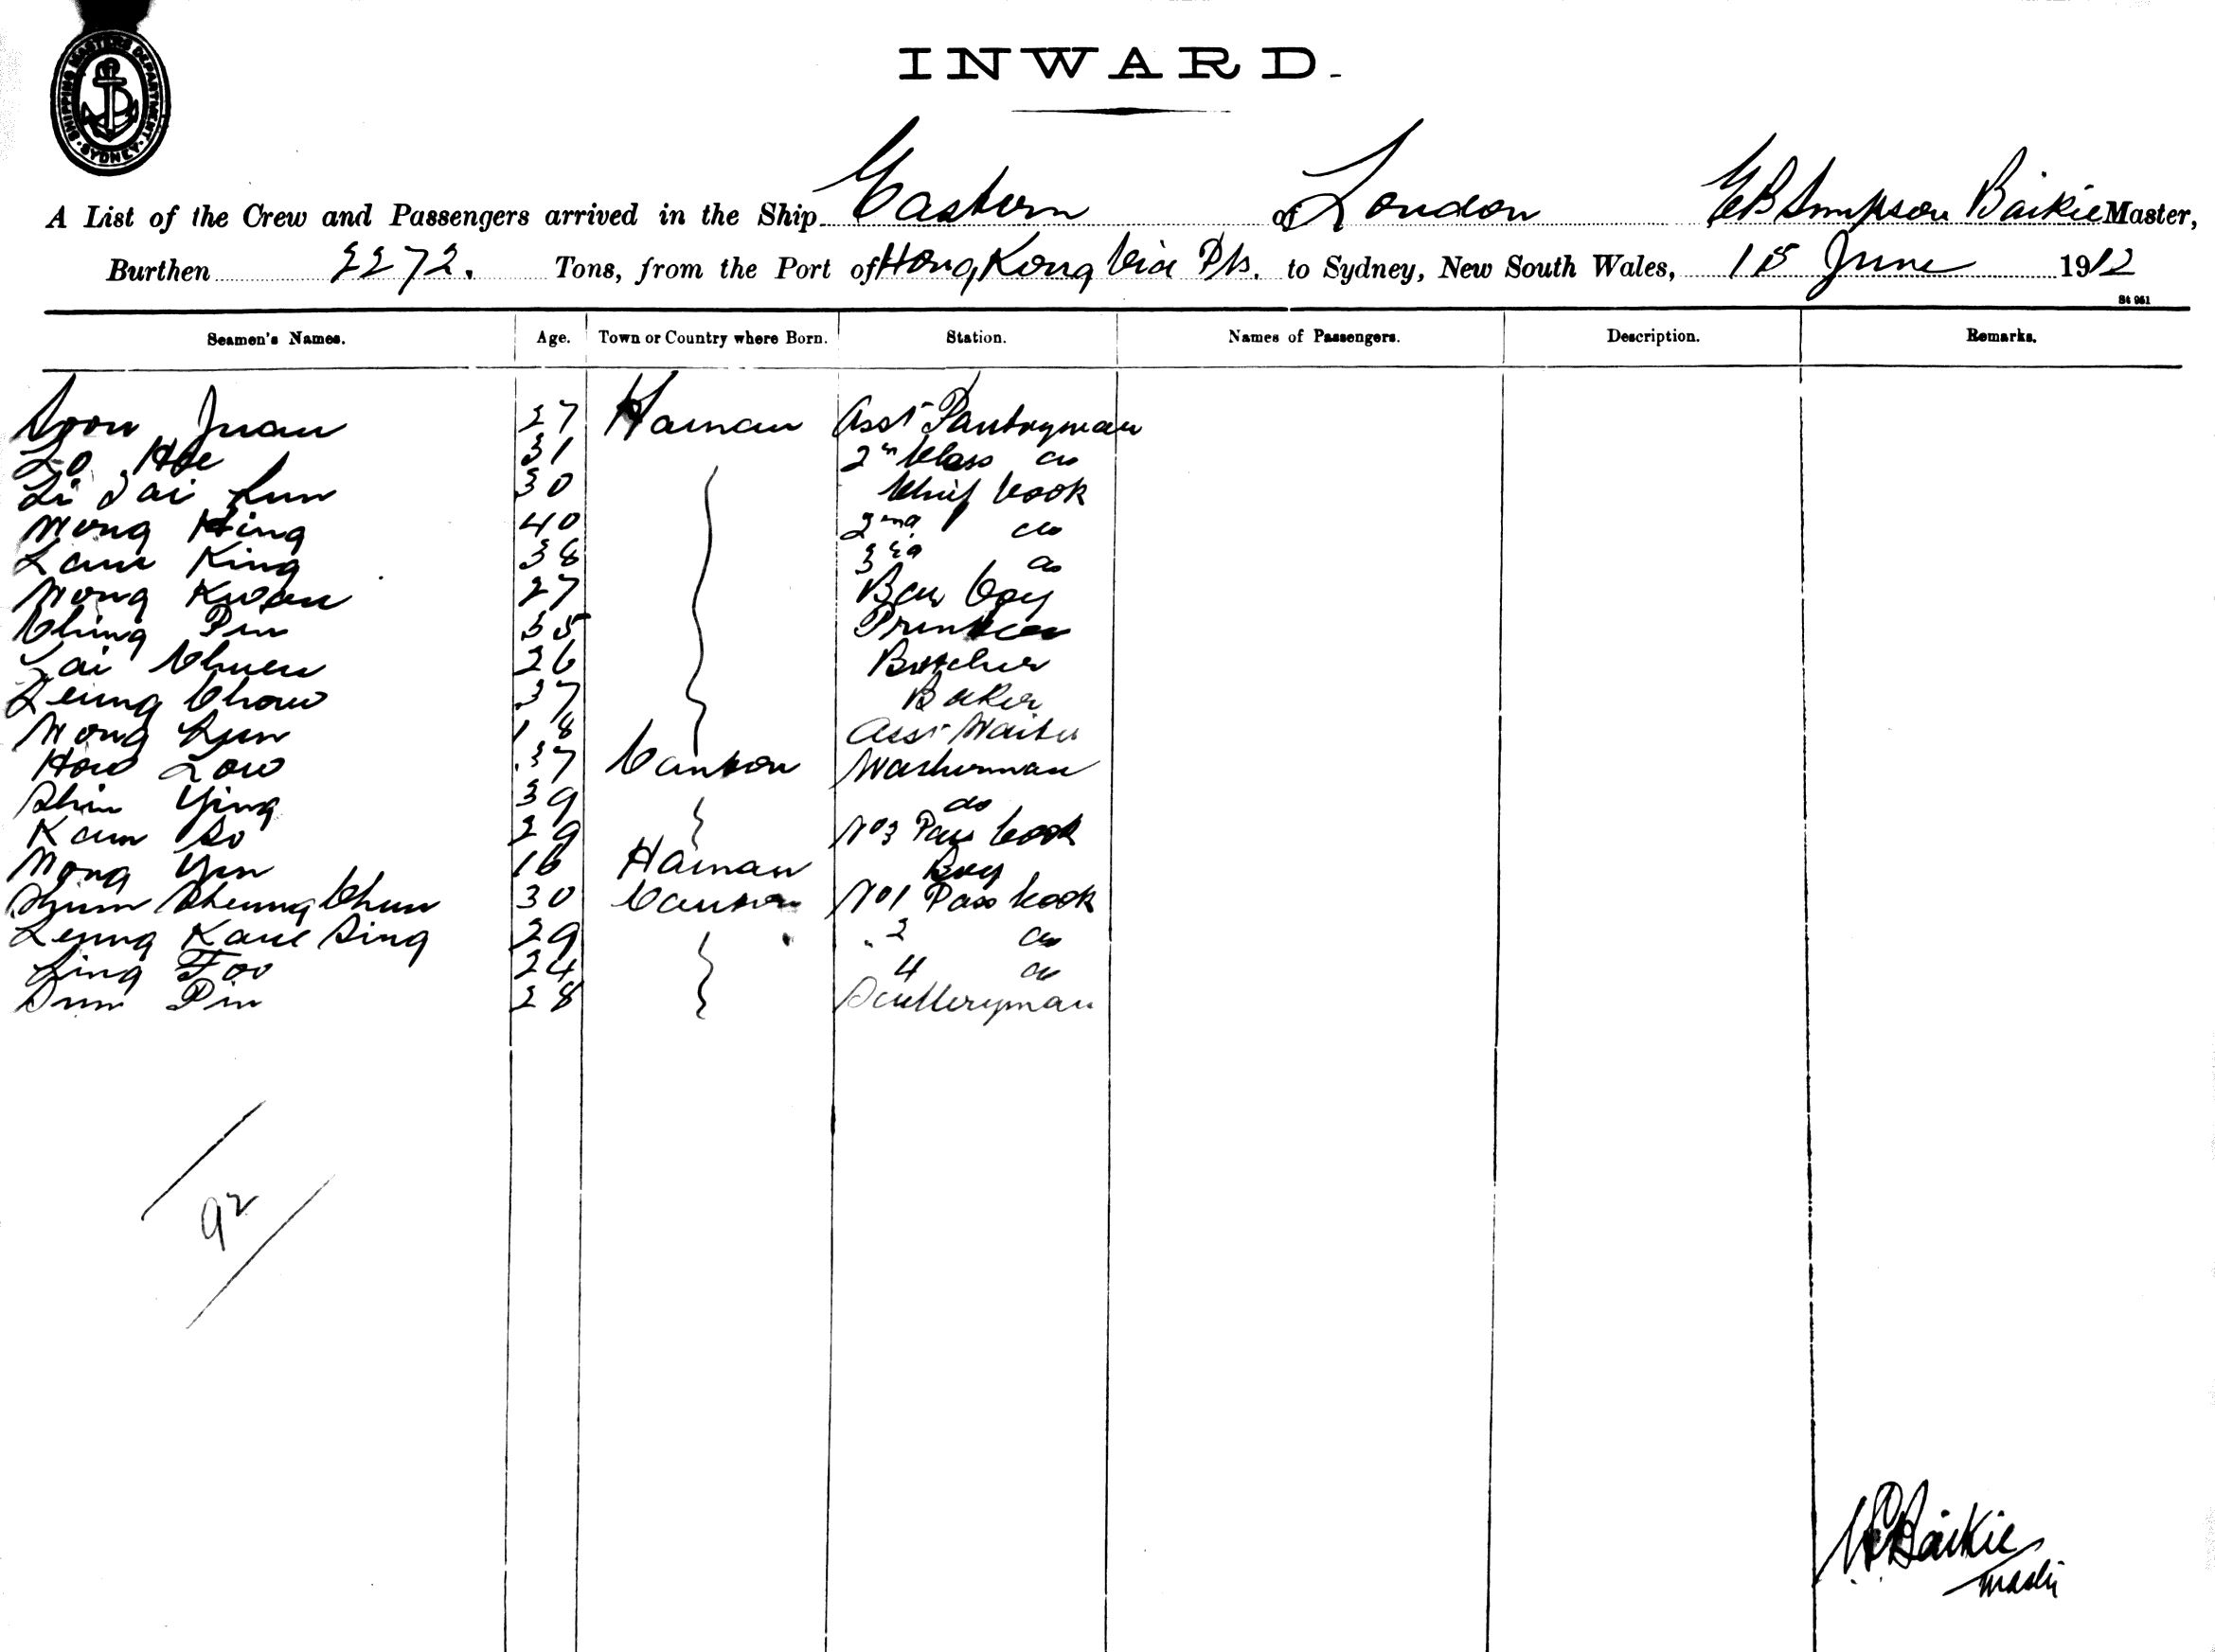 SHIPPING MASTERS DEPARTMENT SYDNEY
INWARD.
A List of the Crew and Passengers arrived in the Ship Eastern of London E B Simpson Baikie Master,
Burthen 2272. Tons, from the Port of Hong Kong Via Pts. to Sydney, New South Wales, 15 June 1912
St 951
Seamen's Names. Age. Town or Country where Born. Station. Names of Passengers. Description. Remarks.
Soon Juan 27 Hainan Asst Pantryman
Lo Hoe 31 2nd Class do
Li Tai Lun 30 Chief Cook
Wong Hing 40 2nd do
Lam King 38 3rd do
Wong Kwan 27 Bar boy
Ching Pun 35 Printer
Tai Chuen 26 Butcher
Leung Chow 37 Baker
Wong Lun 18 Asst Waiter
How Low 37 Canton Washerman
Shin Ying 39 do
Kam So 29 No 3 Pass Cook
Wong Yun 16 Hainan Boy
Shum Sheung Chun 30 Canton No 1 Pass Cook
Leung Kane Sing 29 " 2 do
Ling Foo 24 4 do
Sum Pin 28 Sculleryman
92
Baikie
Master